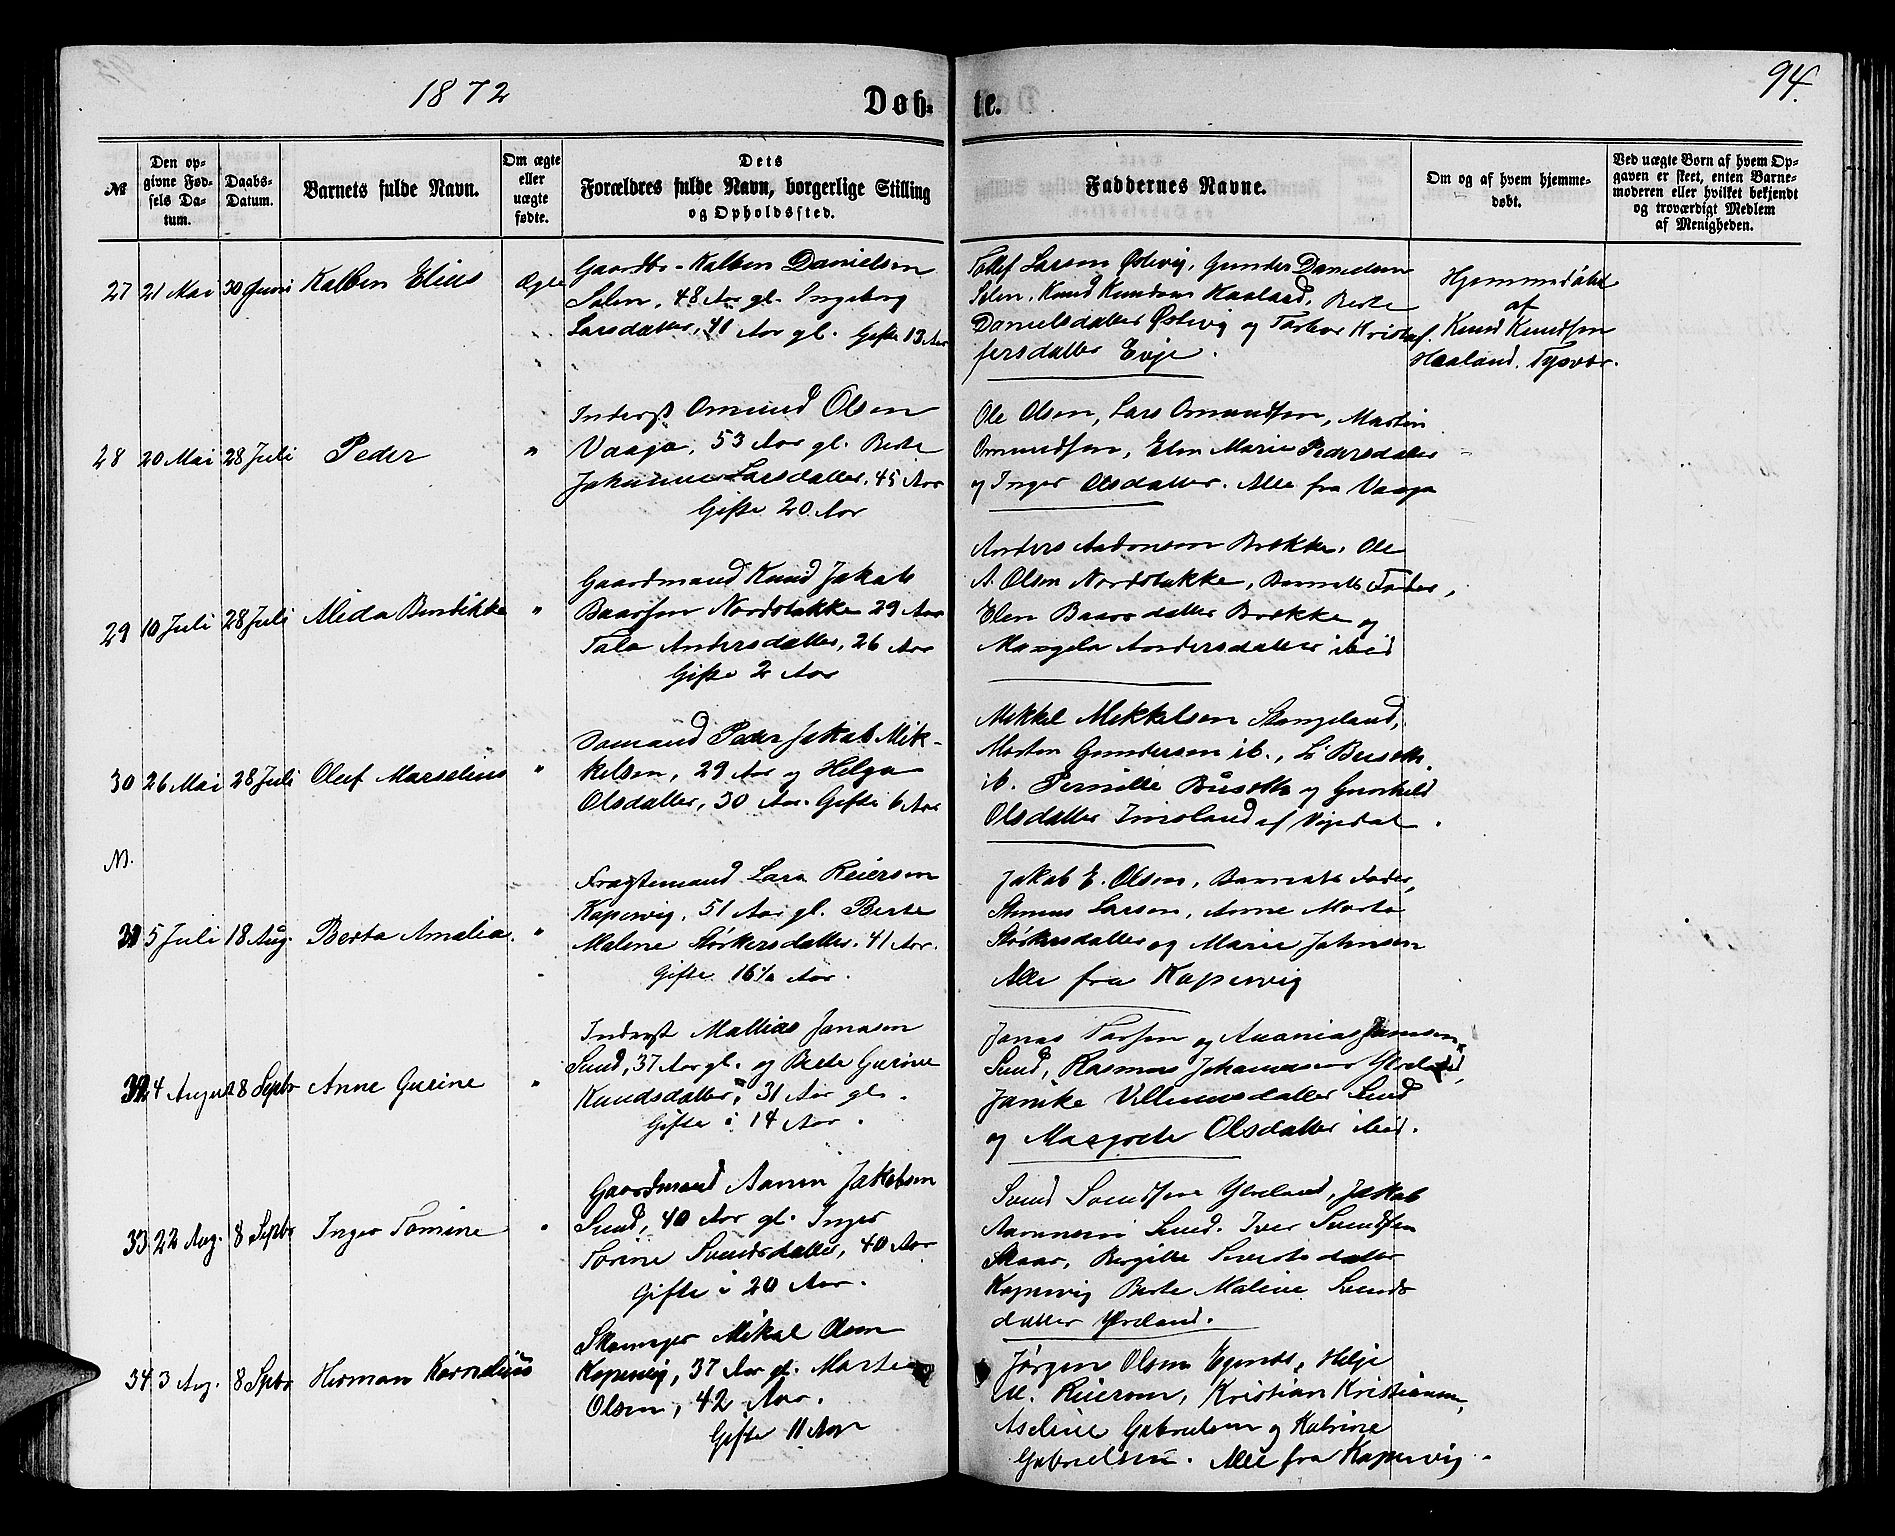 1872
Døb-
te.
94.
№
Den op-
givne Fød-
sels Da-
tum.
Daabs-
Datum.
Barnets fulde Navn.
Om ægte
eller
uægte
fødte.
Dets
Forældres fulde Navn, borgerlige Stilling
og Opholdssted.
Faddernes Navne.
Om og af hvem hjemme-
døbt.
Ved uægte Børn af hvem Op-
gaven er skeet, enten Barne-
moderen eller hvilket bekjendt
og troværdigt Medlem
af Menigheden.
27 21 Mai 30 Juni Kalben Elius Ægte
Gaardbr. Kalben Danielsen
48 Aar gl. Ingeborg
Larsdatter, 41 Aar gl. Gifte 13 Aar
Tollef Larsen Østevig, Gunder Danielsen
Knud Knudsen Haaland, Berte
Danielsdatter Østevig og Kristof-
fersdatter Evje.
Hjemmedøbt
af
Knud Knudsen
Haaland, Tysvær.
28 20 Mai 28 Juli Peder "
Inderst Omund Olsen
Vaaga, 53 Aar gl. Berte
Johanne Larsdatter, 45 Aar
Gifte 20 Aar
Ole Olsen, Lars Omundsen, Martin
Omundsen, Elen Marie Pedersdatter
og Inger Olsdatter. Alle fra Vaaga
29 10 Juli 28 Juli Alida Bendikke "
Gaardmand Knud Jakob
Baarsen Nordstokke 29 Aar
Andersdatter, 26 Aar
Gifte 2 Aar
Anders Brekke, Ole
A. Olsen Nordstokke, Barnets Fader,
Elen Baarsdatter Brekke og
Andersdatter ibid
30 26 Mai 28 Juli Oluf Marselius "
Peder Jakob Mik-
kelsen, 29 Aar og Helga
Olsdatter, 30 Aar. Gifte 6 Aar
Mikkel Mikkelsen Stangeland,
Morten Gundersen ib., L.
ib. Pernille og Gunhild
Olsdatter Imsland af Vigedal.
N.
31 5 Juli 18 Aug. Berta Amalia. "
Fragtemand Lars Reiersen
Kopervig, 51 Aar gl. Berte
Malene Størkersdatter. 41 Aar.
Gifte 16½ Aar.
Jakob E. Olsen, Barnets Fader,
Larsen, Anne Marta
Størkersdatter og Marie Johnsen
Alle fra Kopervig
32 4 August 8 Septbr Anne Gurine "
Inderst Mathias Jonasen
Sund, 37 Aar gl. og Berte Gurine
Knudsdatter, 31 Aar gl.
Gifte i 14 Aar.
Jonas og Ananias Jonasen
Sund, Rasmus Johannesen
Janike Villumsdatter Sund
og Margrete Olsdatter ibid.
33 22 Aug. 8 Septbr Inger Tomine
Gaardmand Jakobsen
Sund, 40 Aar gl. Inger
Sorine Svendsdatter, 40 Aar
Gifte i 20 Aar.
Svend Svendsen Jakob
Sund. Iver Svendsen
Skaar, Birgitte Sivertsdatter
Kopervig Berte Malene Svends-
datter
34 3 Aug. 8 Septbr Herman Kornelius
Skomager Mikal Olsen
Kopervig, 37 Aar gl. Marte
Olsen, 42 Aar.
Gifte 11 Aar
Jørgen Olsen Helje
M. Reiersen, Kristian Kristiansen,
Aseline Gabrielsen og Katrine
Gabrielsen. Alle fra Kopervig.